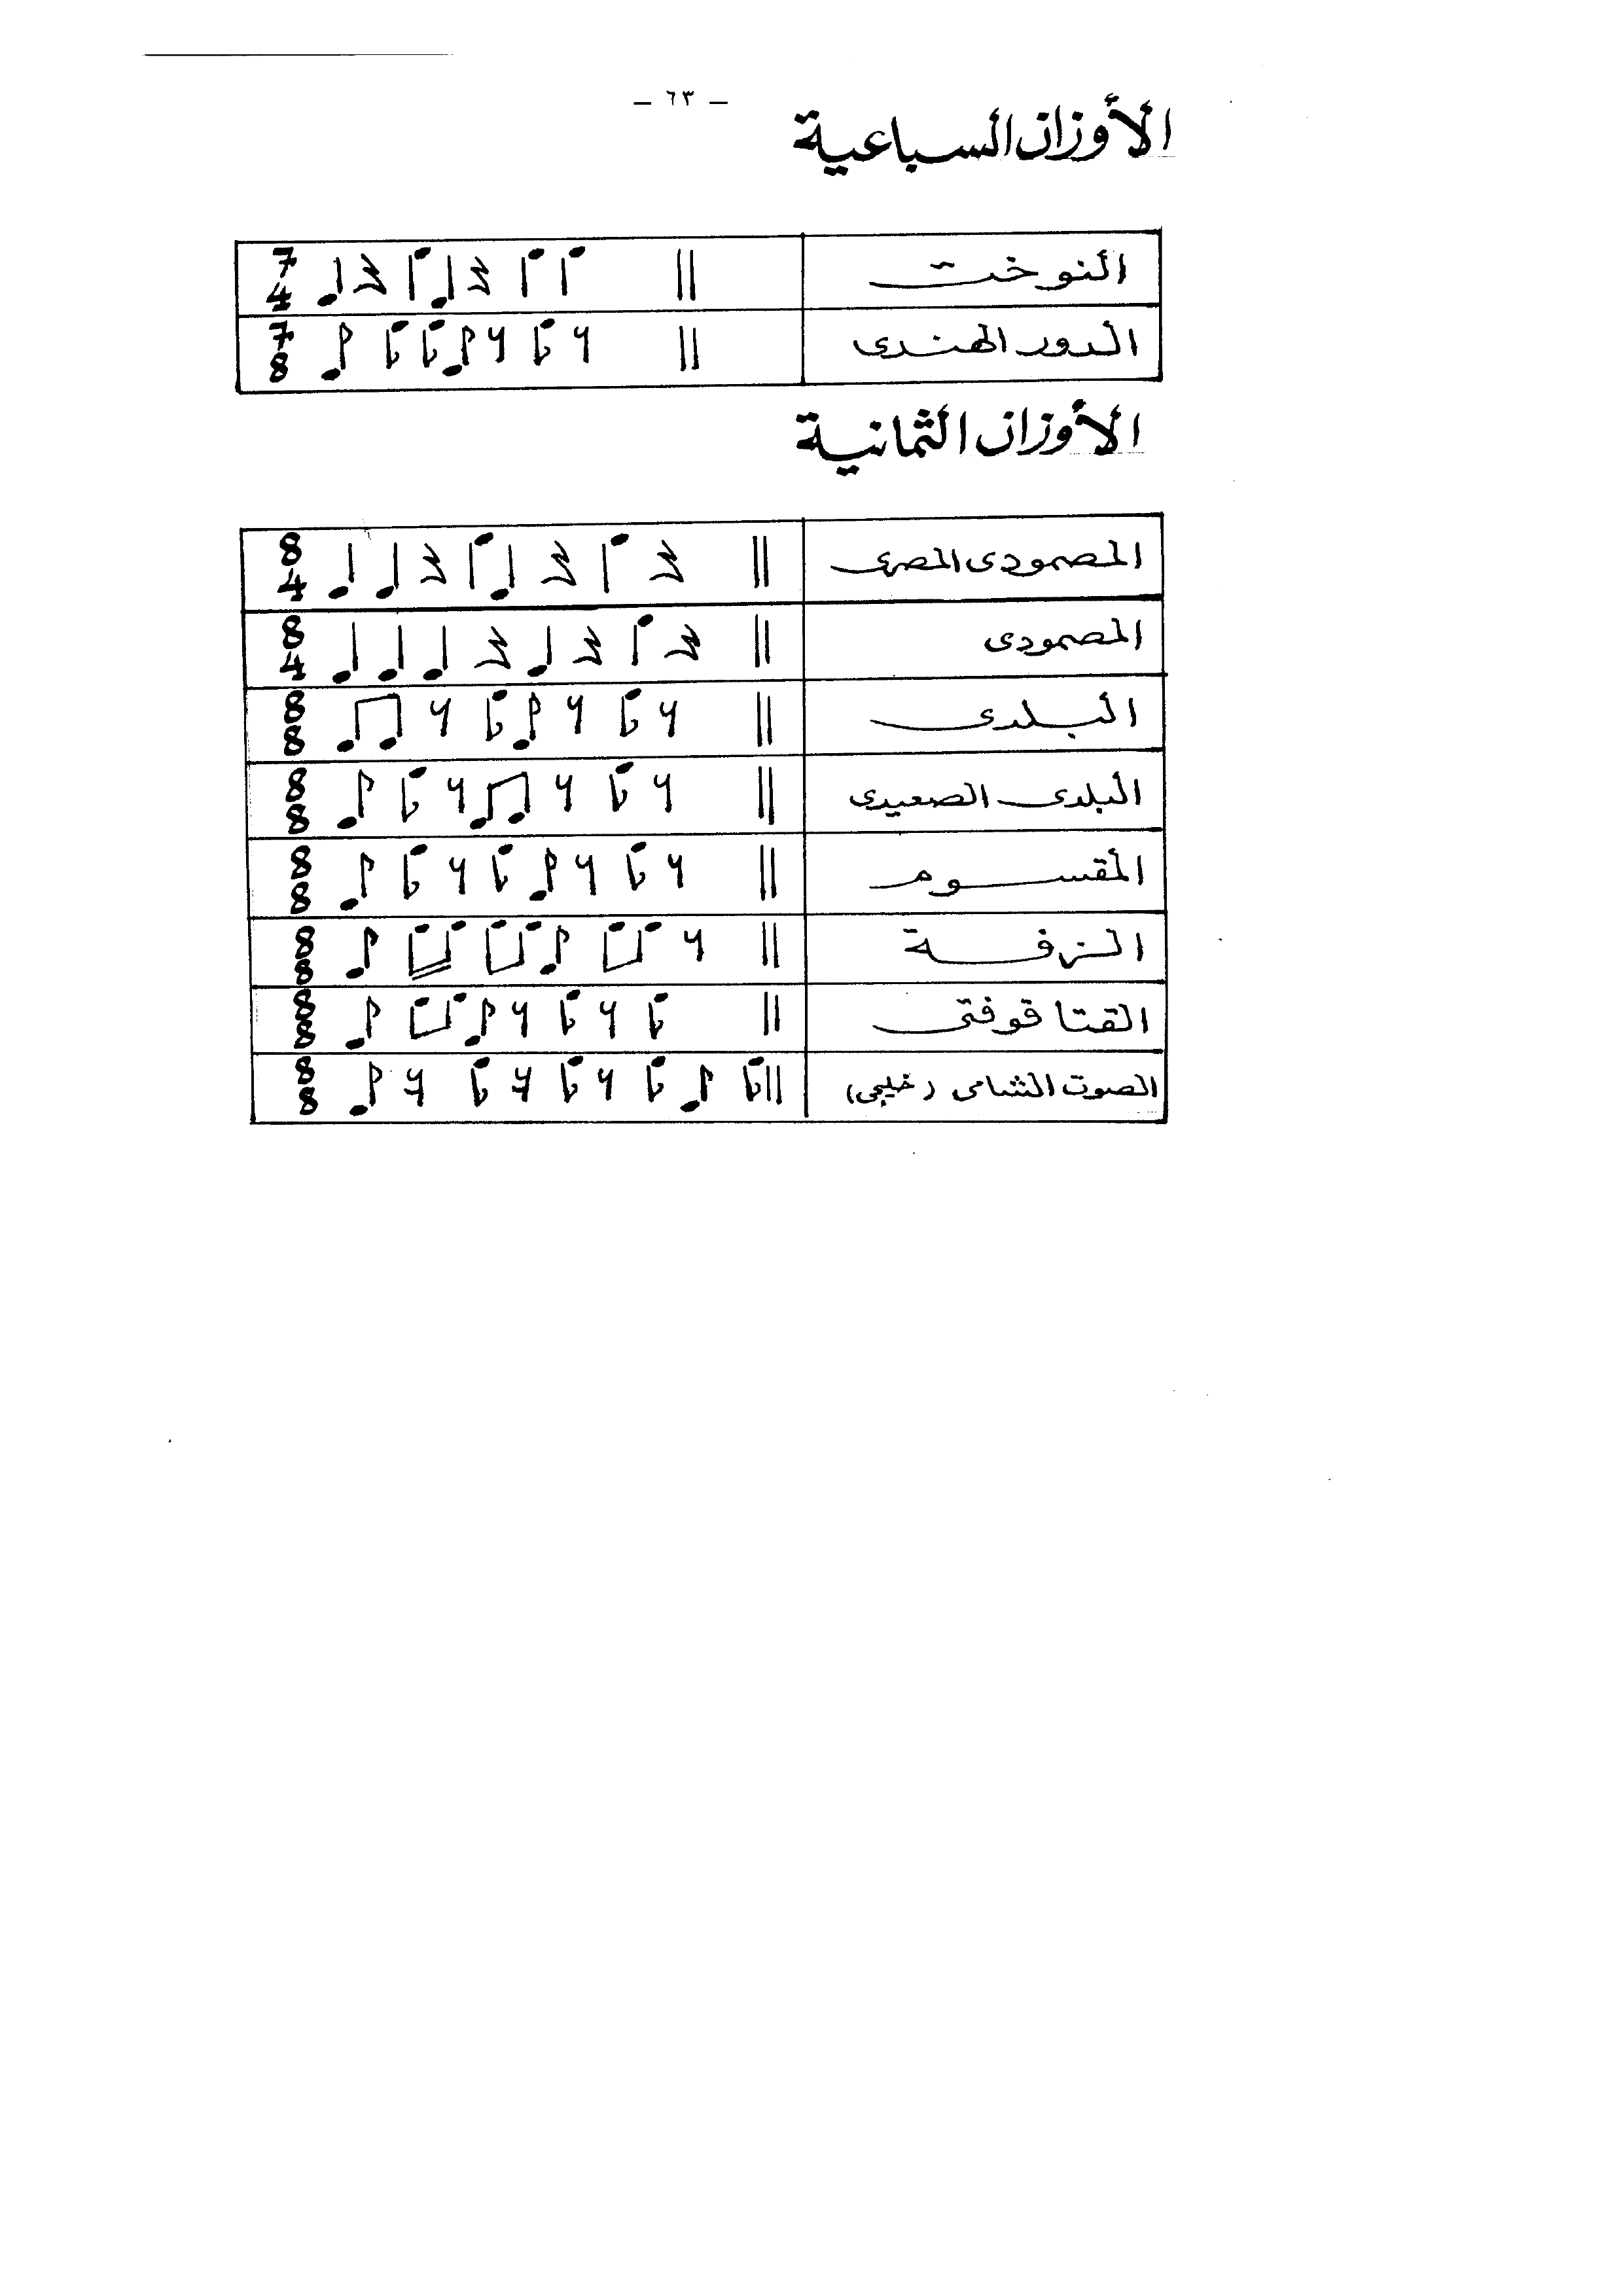 – ٦٣ –
الأوزان السباعية
النوخت 7 4
الدور الهندى 7 8
الأوزان الثمانية
المصمودى المصرى 8 4
المصمودى 8 4
البلدى 8 8
البلدى الصعيدى 8 8
المقسوم 8 8
الزفة 8 8
القتاقوفتى 8 8
الصوت الشامى (خليجى) 8 8